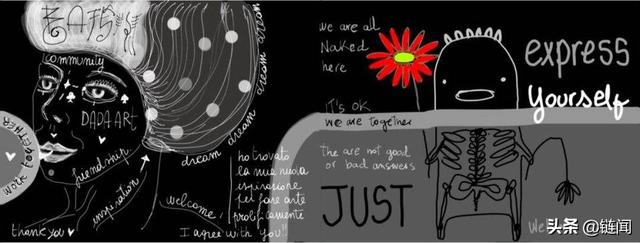 community
DADA ART
WORK TOGETHER
friendship
inspiration
thank you
welcome
dream dream dream dream
ho trovato
la mia nuova
ispirazione
per fare arte
prolificamente
I agree with you!!
we are all
Naked
here
IT'S OK
we are together
the are not good
or bad answers
JUST
express
Yourself
We
头条 @链闻